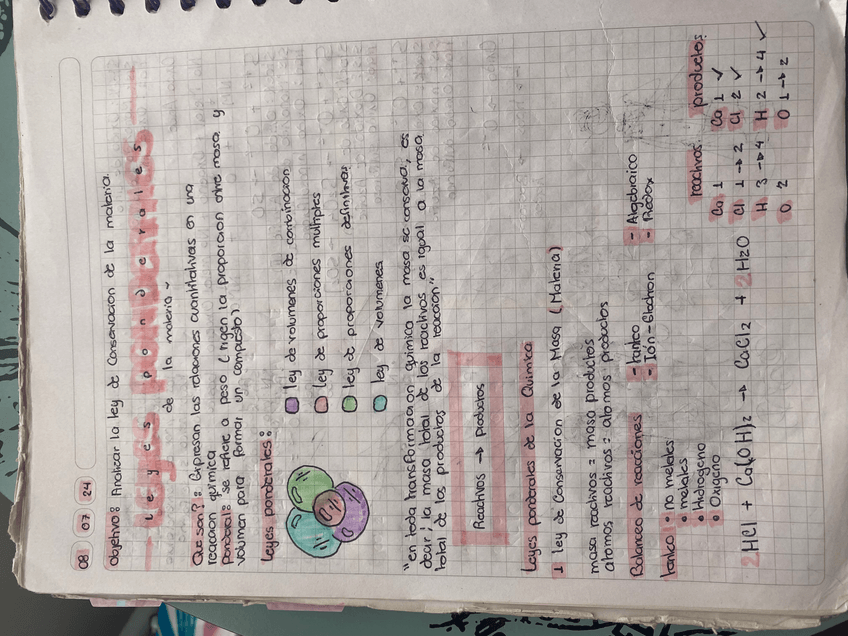 08 07 24
objetivo: Analizar la ley de Conservacion de la materia.
Leyes ponderales
Leyes ponderales
de la materia
Que son?: Expresan las relaciones cuantitativas en una
reaccion quimica
Ponderal: se refiere a peso (rigen la proporcion entre masa y
volumen para formar un compuesto)
Leyes ponderales:
ley de volumenes de combinacion
ley de proporciones multiples
ley de proporciones definitivas
ley de volumenes
"en toda transformacion quimica la masa se conserva, es
decir; la masa total de los reactivos es igual a la masa
total de los productos de la reaccion"
Reactivos → productos
Leyes ponderales de la Quimica
1 ley de Conservacion de la Masa (Materia)
masa reactivos = masa productos
atomos reactivos = atomos productos
Balanceo de reacciones
- Tanteo
- Ión-Electron
- Algebraico
- Redox
Tanteo
• no metales
• metales
• Hidrogeno
• Oxigeno
2HCl + Ca(OH)2 → CaCl2 + 2H2O
reactivos productos
Ca 1 Ca 1 ✓
Cl 1→2 Cl 2 ✓
H 3→4 H 2→4 ✓
O 2 O 1→2